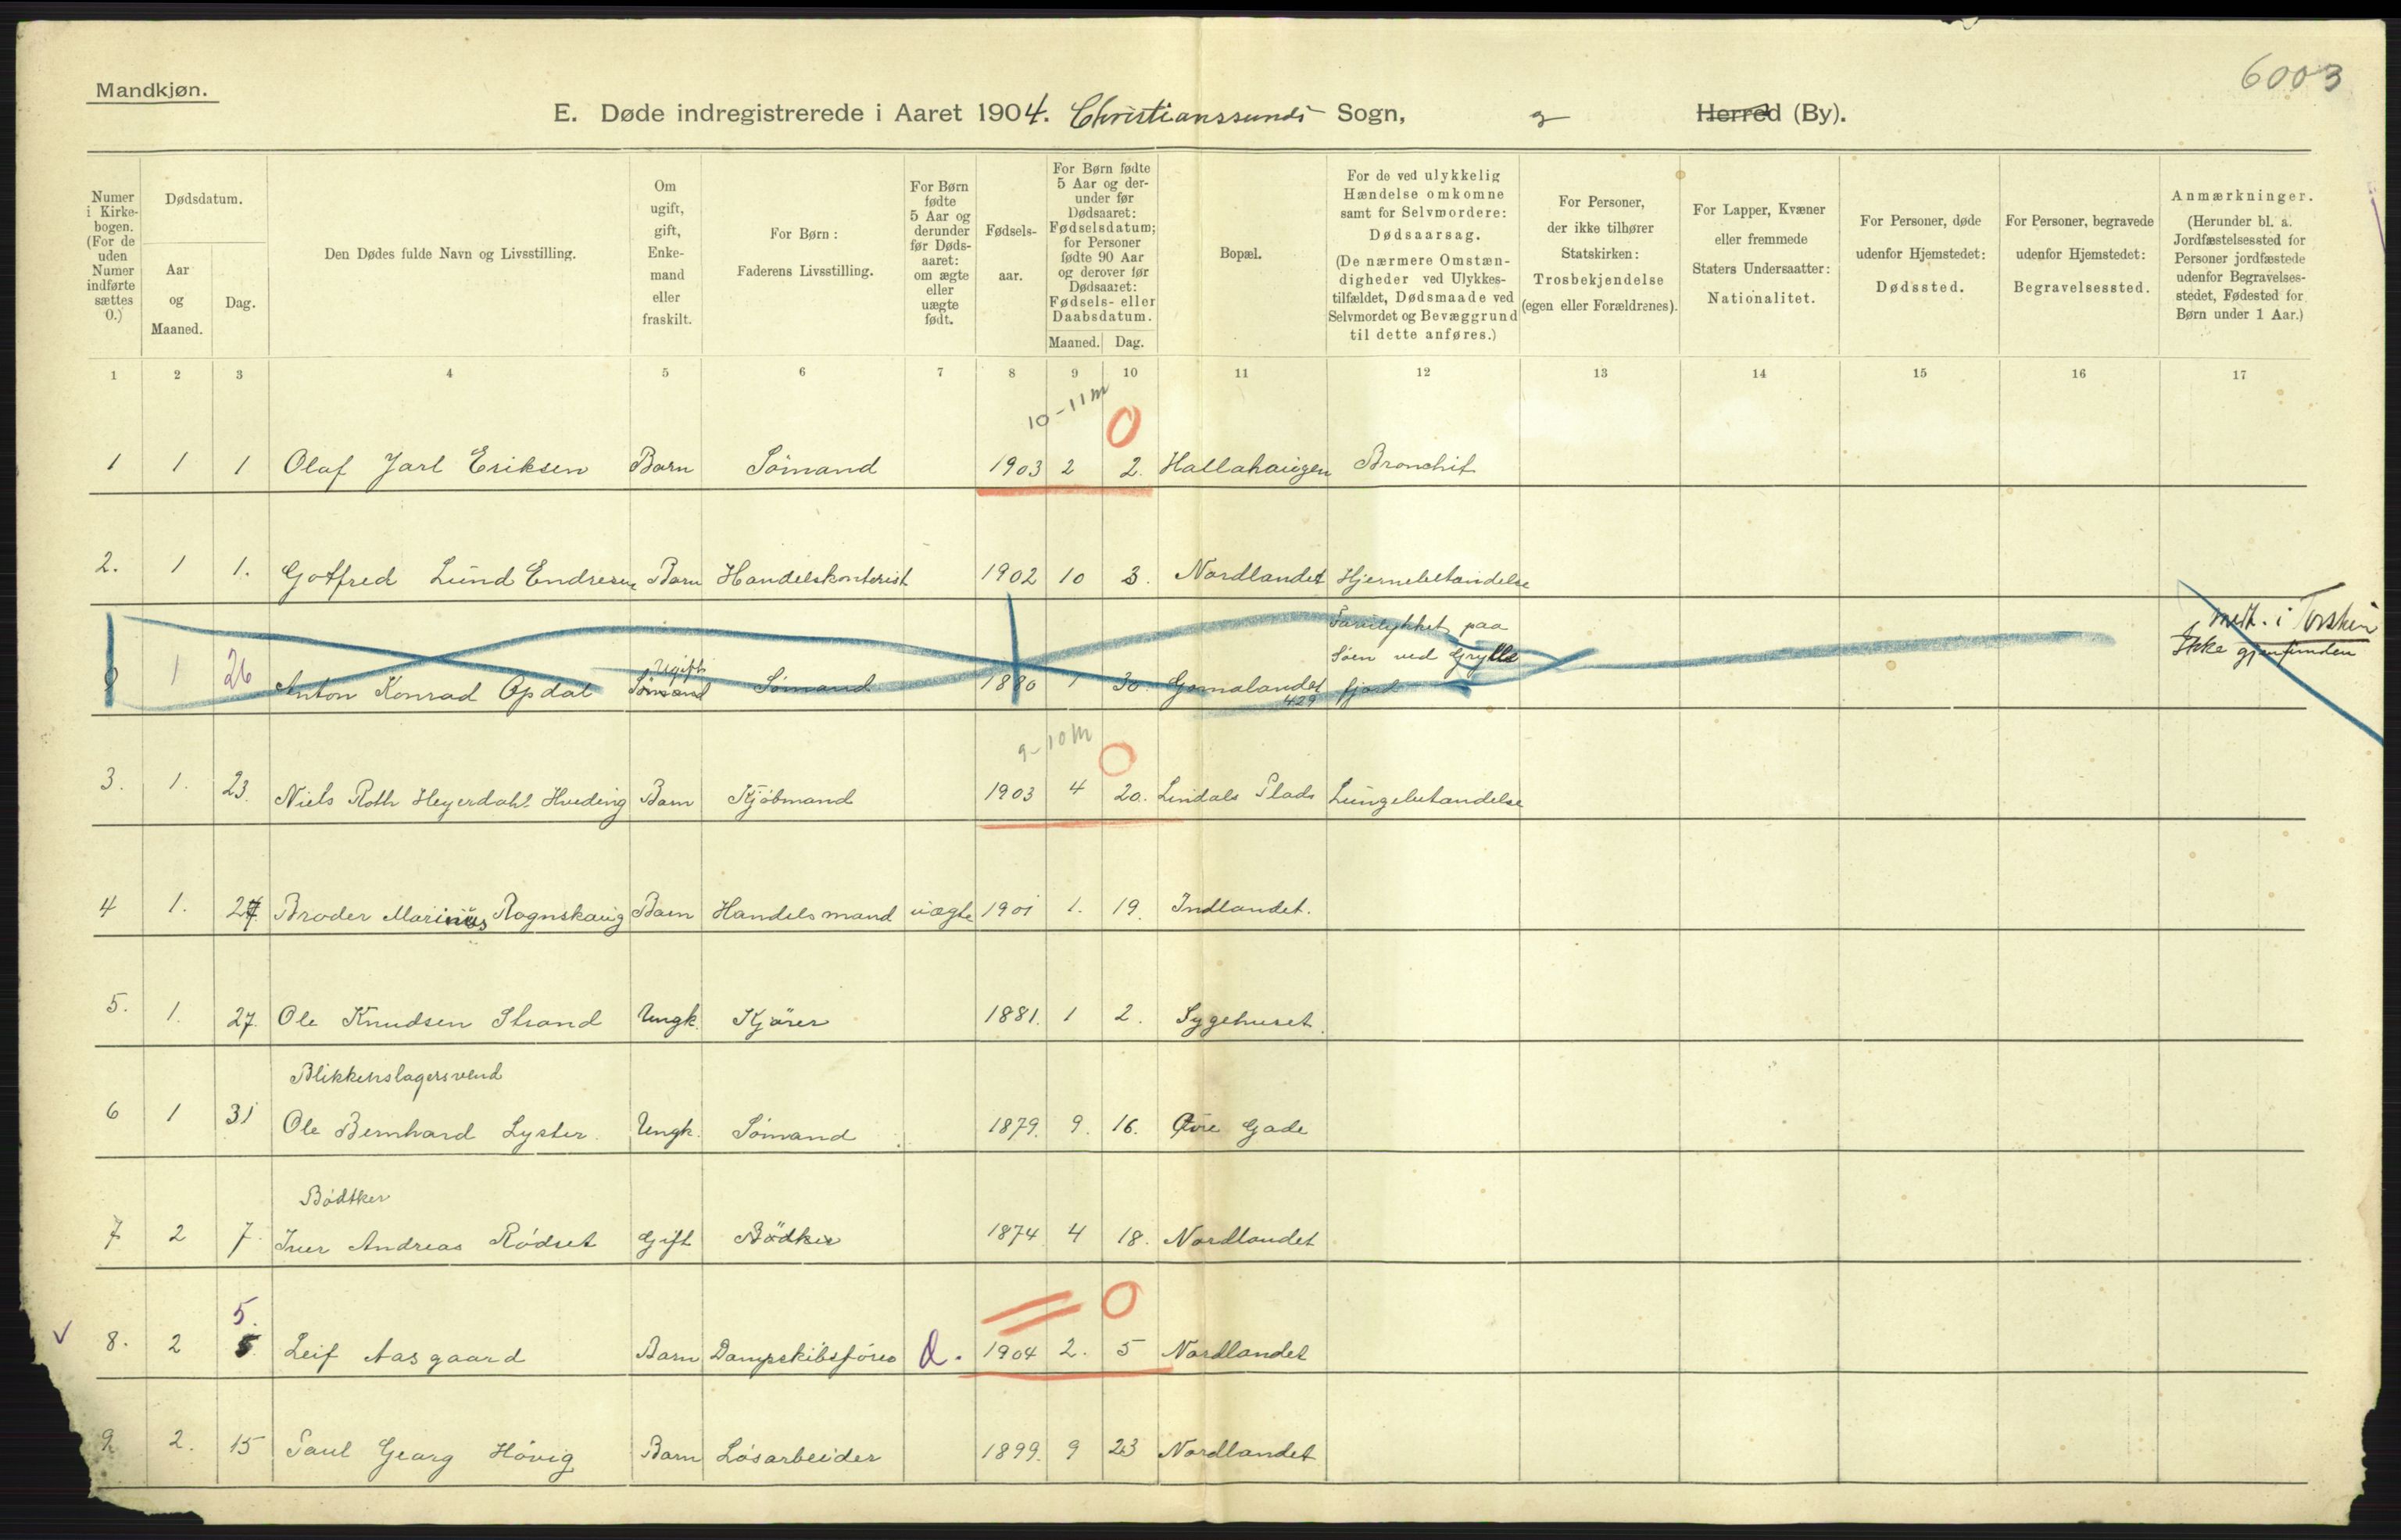 Mandkjøn.
6003
E. Døde indregistrerede i Aaret 1904. Christianssunds Sogn, Herred (By).
Numer i Kirkebogen. (For de uden Numer indførte sættes 0.)
Dødsdatum.
Aar og Maaned.
Dag.
Den Dødes fulde Navn og Livsstilling.
Om ugift, gift, Enkemand eller fraskilt.
For Børn: Faderens Livsstilling.
For Børn fødte 5 Aar og derunder før Dødsaaret: om ægte eller uægte født.
Fødselsaar.
For Børn fødte 5 Aar og derunder før Dødsaaret: Fødselsdatum; for Personer fødte 90 Aar og derover før Dødsaaret: Fødsels- eller Daabsdatum.
Maaned. Dag.
Bopæl.
For de ved ulykkelig Hændelse omkomne samt for Selvmordere: Dødsaarsag. (De nærmere Omstændigheder ved Ulykkestilfældet, Dødsmaade ved Selvmordet og Bevæggrund til dette anføres.)
For Personer, der ikke tilhører Statskirken: Trosbekjendelse (egen eller Forældrenes).
For Lapper, Kvæner eller fremmede Staters Undersaatter: Nationalitet.
For Personer, døde udenfor Hjemstedet: Dødssted.
For Personer, begravede udenfor Hjemstedet: Begravelsessted.
Anmærkninger. (Herunder bl. a. Jordfæstelsessted for Personer jordfæstede udenfor Begravelsesstedet, Fødested for Børn under 1 Aar.)
1 2 3 4 5 6 7 8 9 10 11 12 13 14 15 16 17
10-11 m
0
1 1 1 Olaf Jarl Eriksen Barn Sömand 1903 2 2. Hallahaugen Bronchit
2. 1 1. Gotfred Lund Endresen Barn Handelskontorist 1902 10 3. Nordlandet Hjernebetændelse
Forulykket paa
Ugift Søen ved Grylle
0 1 26 Anton Konrad Opdal Sömand Sömand 1880 1 30. Gomalandet 429 fjord Ikke gjenfunden
9-10 m
0
3. 1. 23. Niels Roth Heyerdahl Hveding Barn Kjöbmand 1903 4 20. Lindals Plads Lungebetændelse
4 1. 27 Broder Marinus Rognskaug Barn Handelsmand uægte 1901 1. 19. Indlandet.
5. 1. 27. Ole Knudsen Strand Ungk. Kjörer 1881. 1 2. Sygehuset.
Blikkenslagersvend
6 1 31 Ole Bernhard Lyster. Ungk. Sömand 1879. 9. 16. Øvre Gade
Bödtker
7 2 7. Iver Andreas Rödset Gift Bödker 1874 4 18. Nordlandet
5.
0
8. 2 5. Leif Aasgaard Barn Dampskibsförer 1904 2. 5 Nordlandet
9. 2. 15 Paul Georg Hövig Barn Lösarbeider 1899. 9 23 Nordlandet